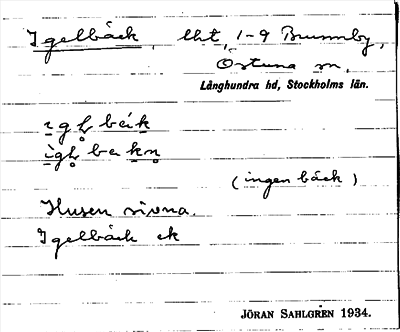 Igelbäck, lht, 1-9 Brunnby,
Östuna sn,
Långhundra hd, Stockholms län.
ìgl̥ bä́k
ìgl̥ ba kn̥
(ingen bäck)
Husen rivna.
Igelbäck ek
JÖRAN SAHLGREN 1934.